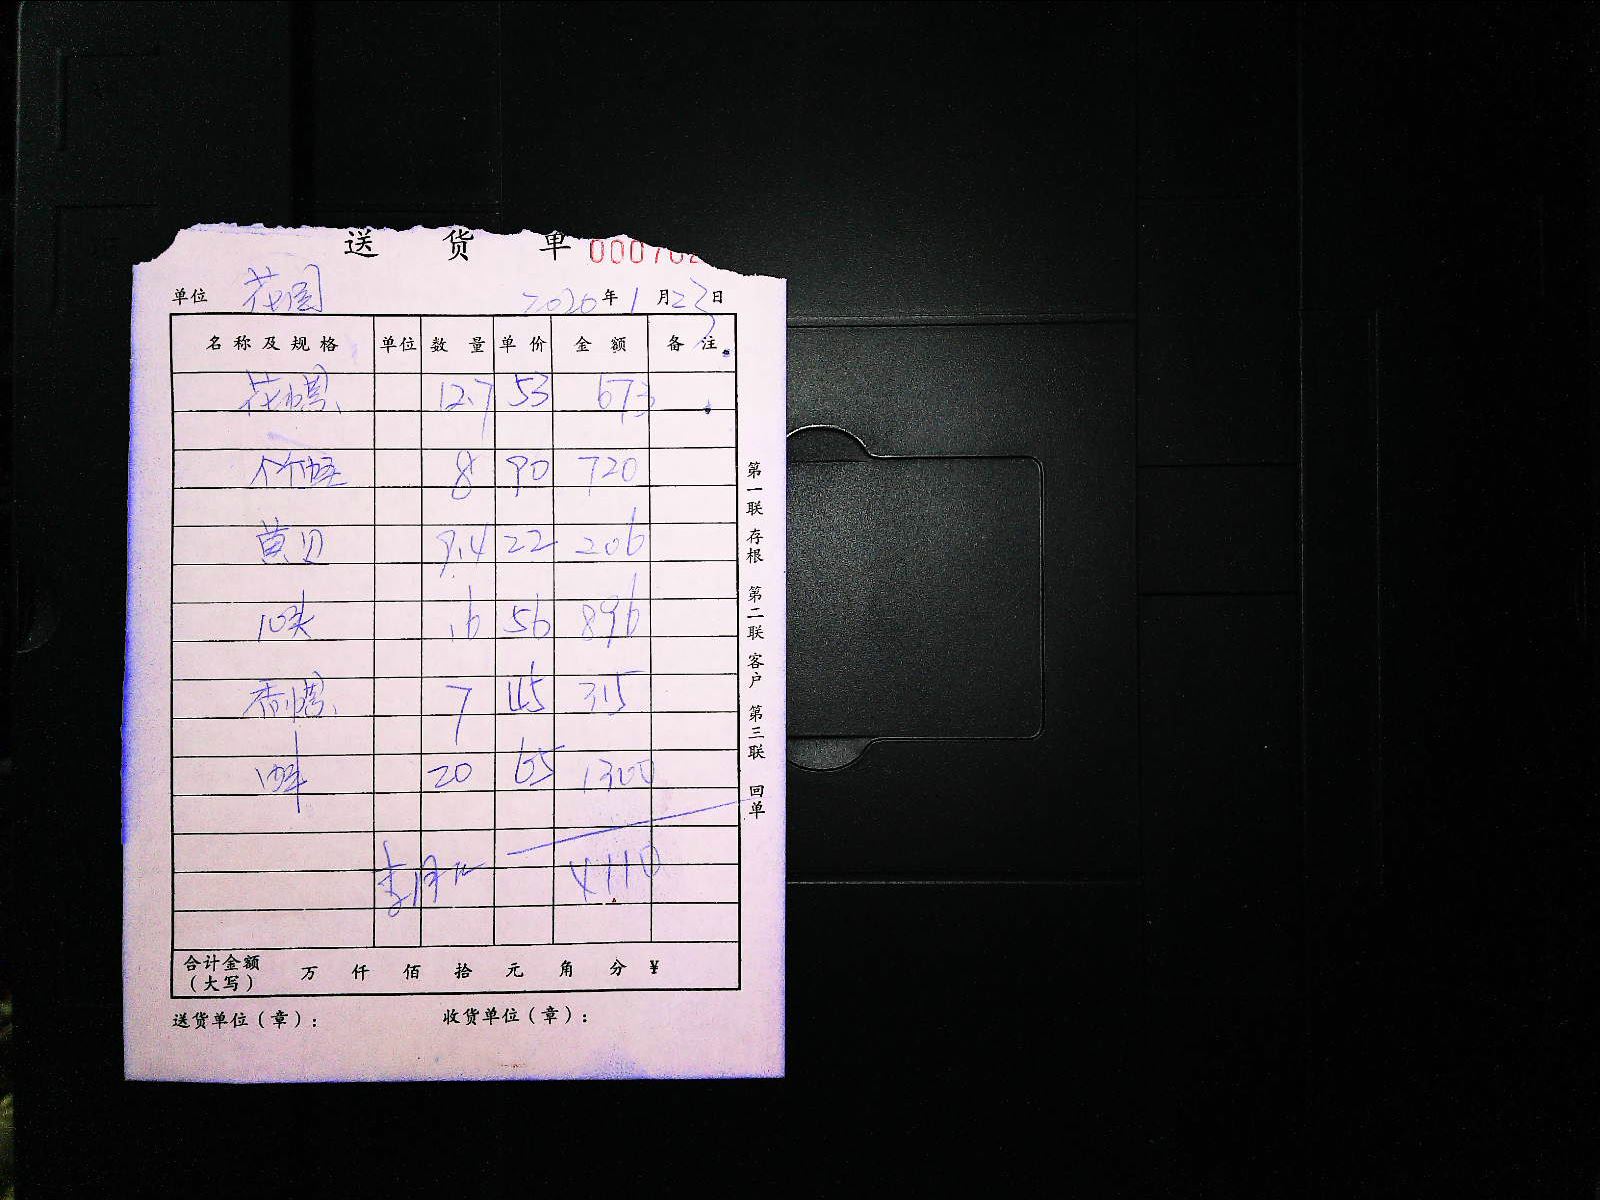 送 货 单 000702
单位 花园 2020年1月23日
名称及规格 单位 数量 单价 金额 备注
花螺 12.7 53 673
8 90 720
黄贝 9.4 22 206
10头 16 56 896
香螺 7 45 315
20 65 1300
4110
合计金额(大写) 万 仟 佰 拾 元 角 分 ¥
送货单位(章): 收货单位(章):
第一联 存根 第二联 客户 第三联 回单